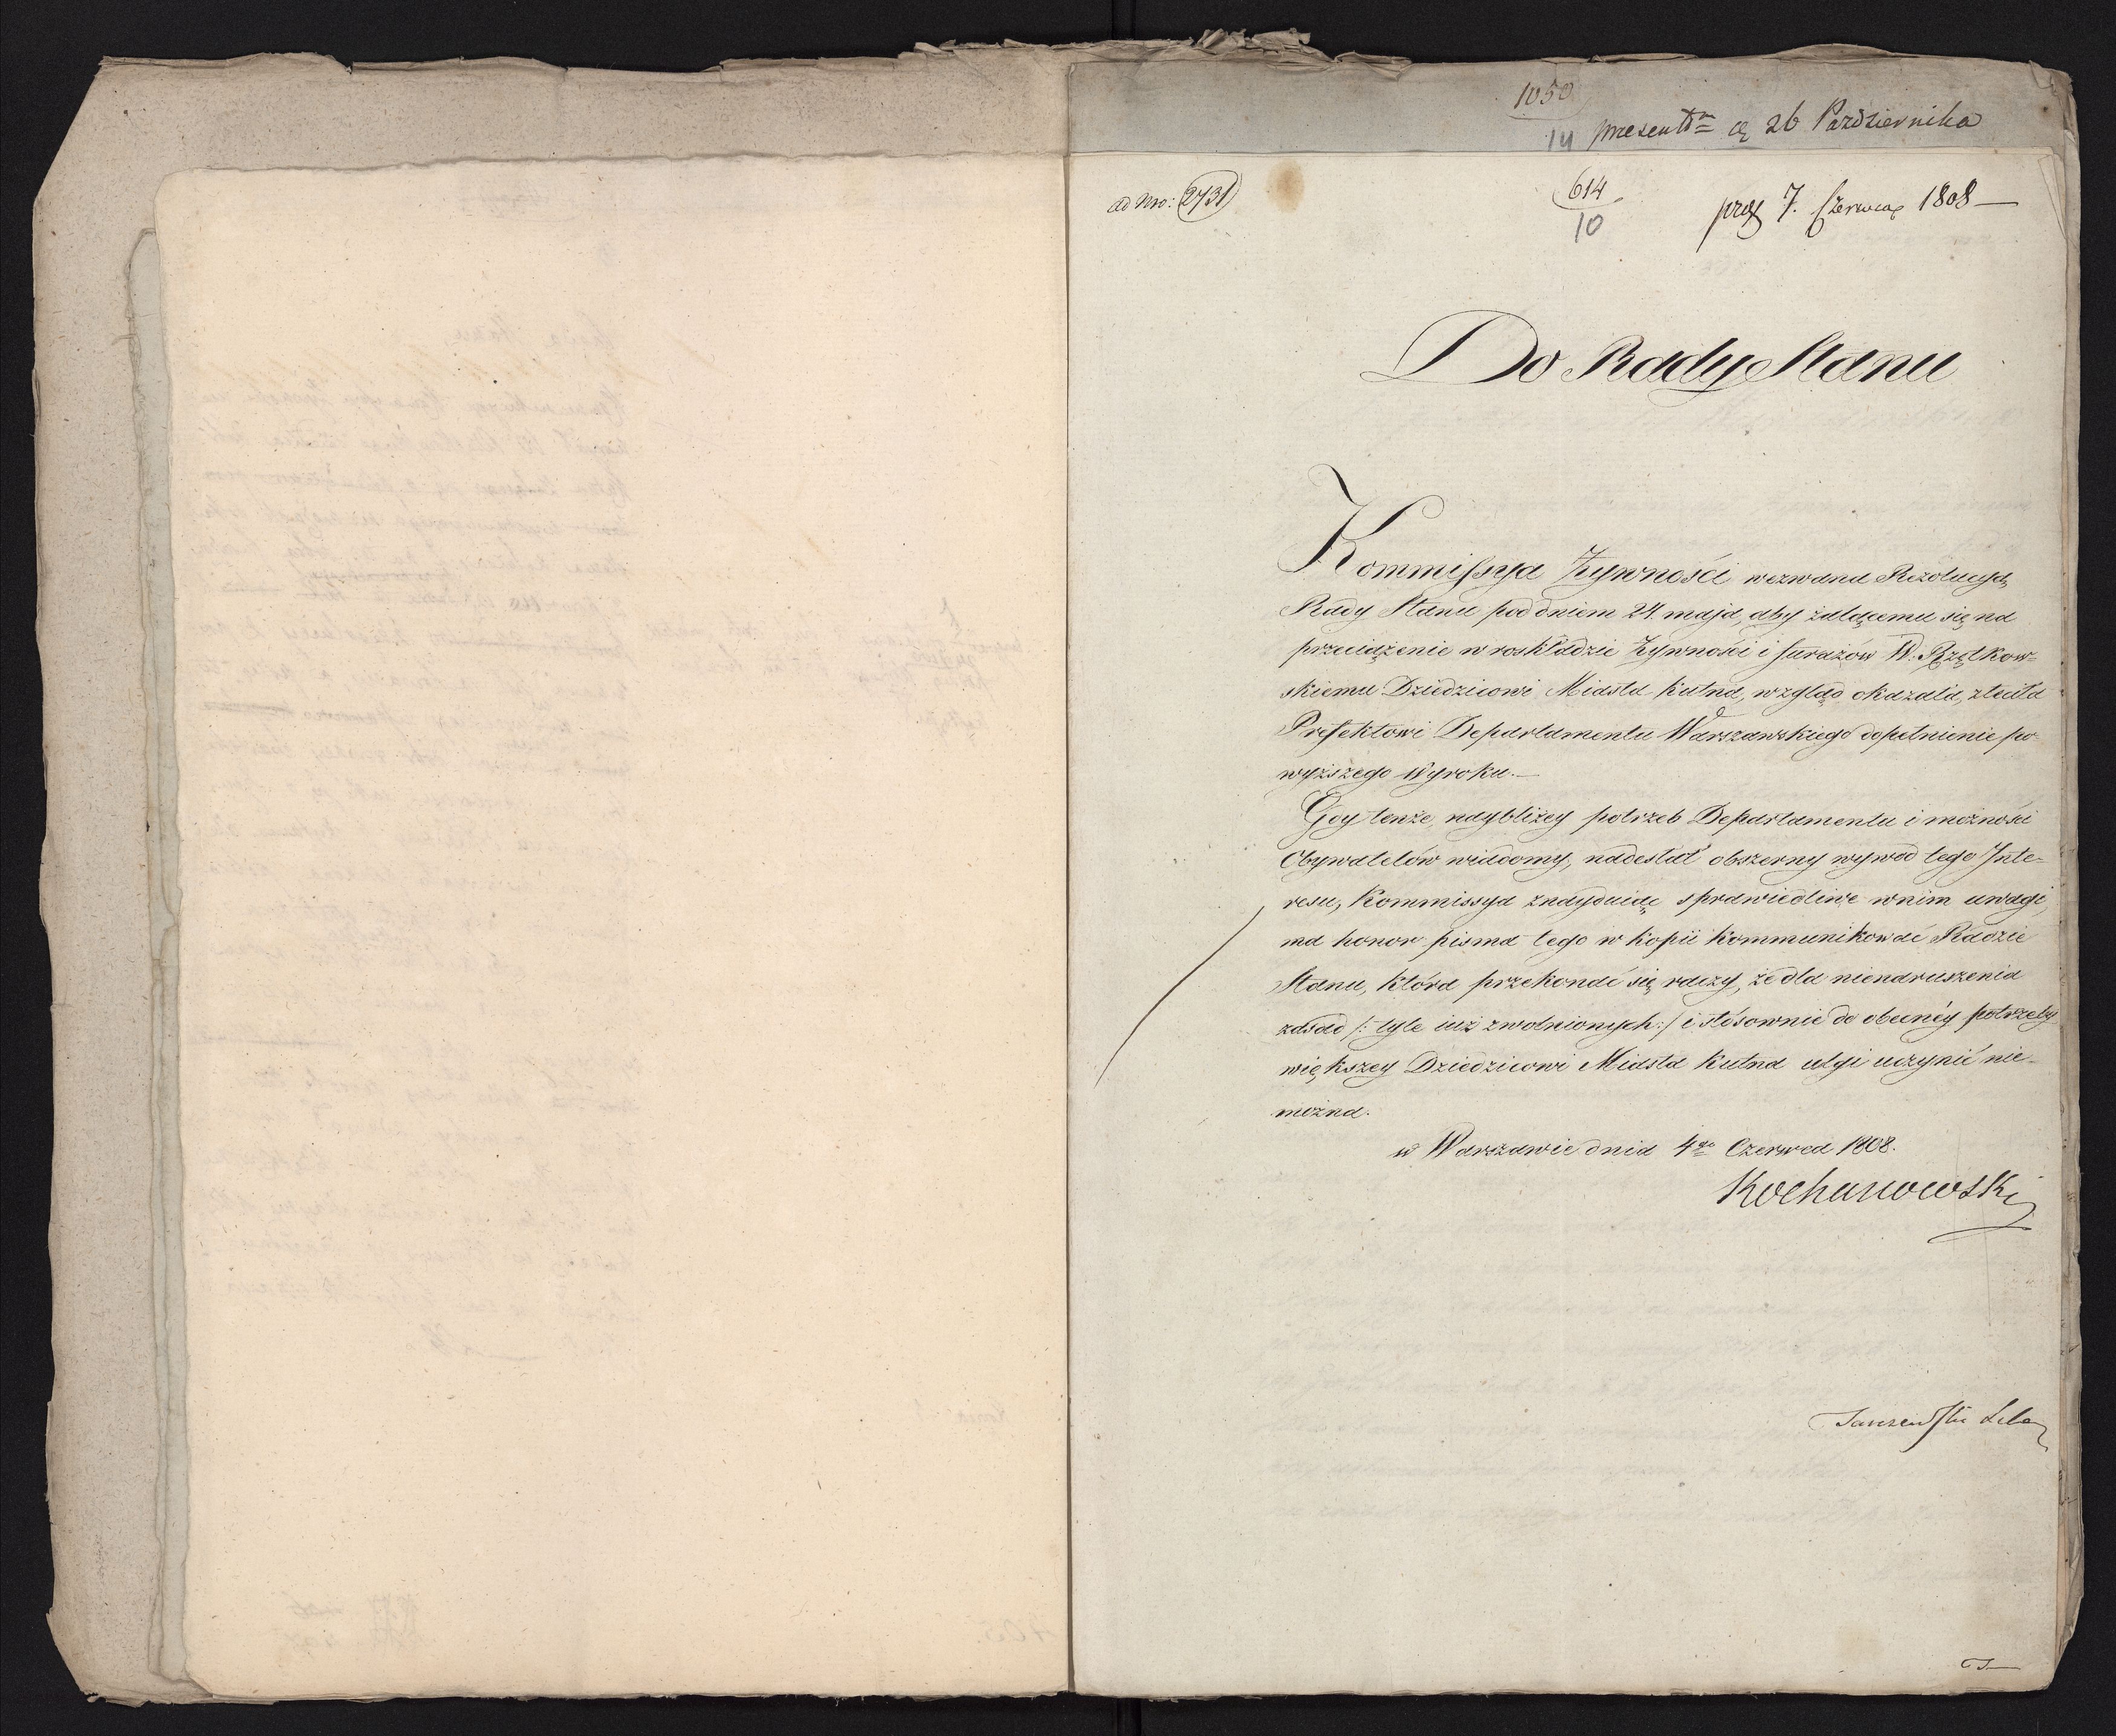 1050
14 presentm 26 Pazdziernika
ad Nro: 2731
614
10
7. Czerwca 1808 —
Do Rady Stanu
Kommissya Żywności wezwana Rezolucyą
Rady Stanu pod dniem 24. maja, aby żalącemu się na
przeciążenie w roskładzie Żywności i furażów W. Rzętkow=
skiemu Dziedzicowi Miasta Kutna, wzgląd okazała, zleciła
Prefektowi Departamentu Warszawskiego dopełnienie po-
wyższego Wyroku.—
Gdy tenże, naybliżey potrzeb Departamentu i możności
Obywatelów wiadomy, nadesłał obszerny wywod tego Inte-
resu, Kommissya znayduiąc sprawiedliwe w nim uwagi,
ma honor pisma tego w kopii kommunikować Radzie
Stanu, która przekonać się raczy, że dla nienaruszenia
zasad /: tyle iuż zwolnionych :/ i stósownie do obecnéy potrzeby
większey Dziedzicowi Miasta Kutna ulgi uczynić nie-
można.
w Warszawie dnia 4go Czerwca 1808.
Kochanowski